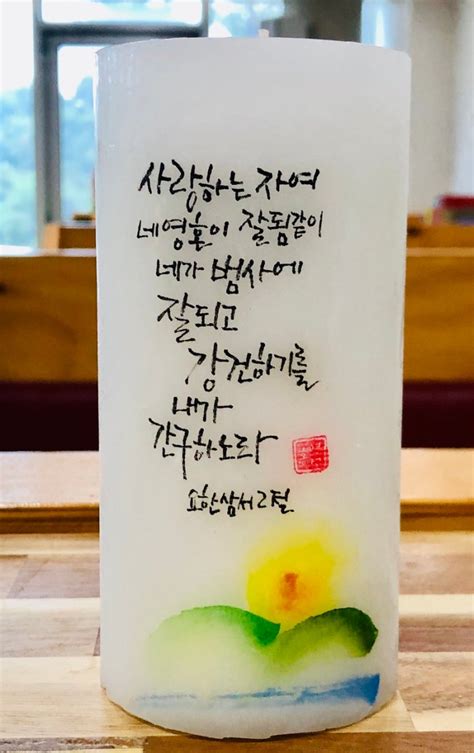 사랑하는 자여
네 영혼이 잘됨같이
네가 범사에
잘되고
강건하기를
내가
간구하노라
요한삼서 2절